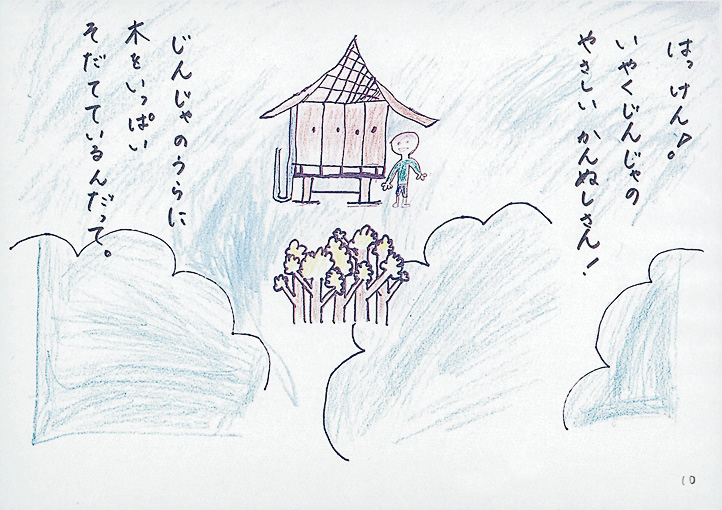 はっけん!。
いやくじんじゃの
やさしいかんぬしさん!
じんじゃのうらに
木をいっぱい
そだてているんだって。
10